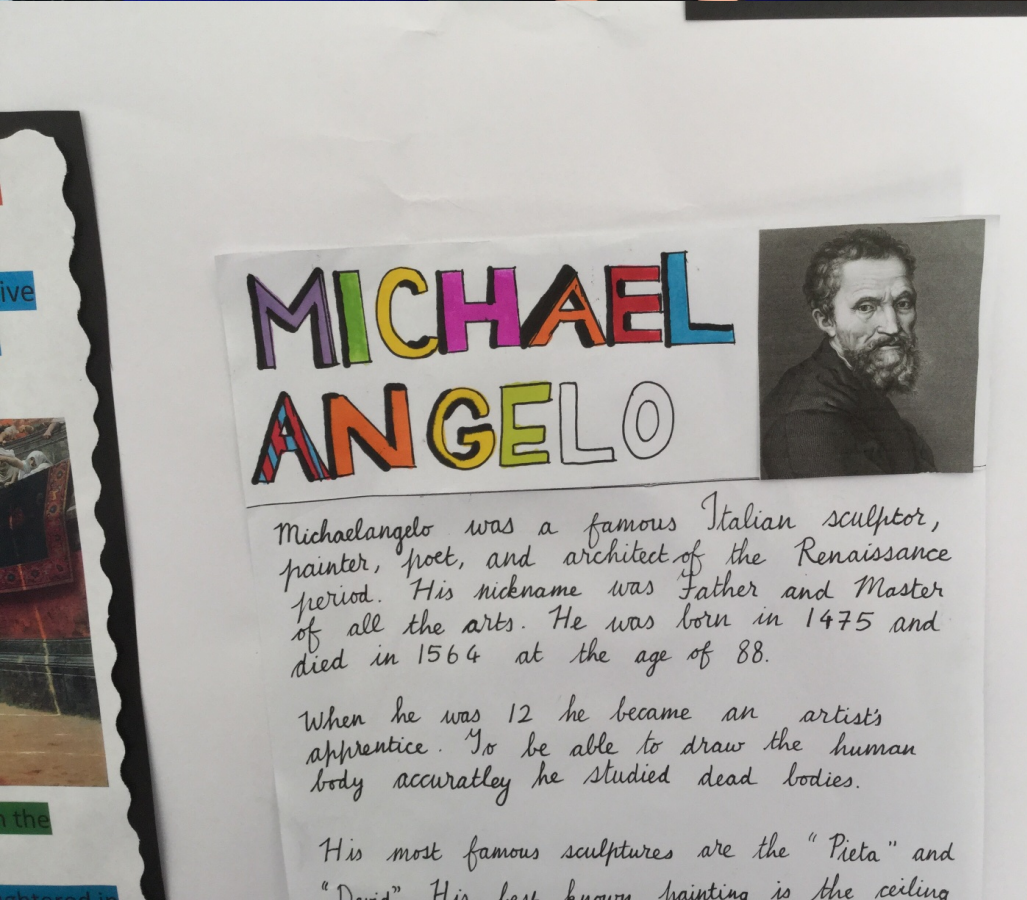 ive
n the
MICHAEL
ANGELO
Michaelangelo was a famous Italian sculptor,
painter, poet, and architect of the Renaissance
period. His nickname was Father and Master
of all the arts. He was born in 1475 and
died in 1564 at the age of 88.
When he was 12 he became an artist's
apprentice. To be able to draw the human
body accuratley he studied dead bodies.
His most famous sculptures are the "Pieta" and
"David". His best known painting is the ceiling